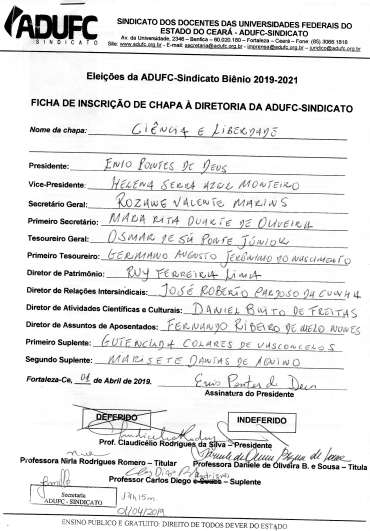 ADUFC
SINDICATO
SINDICATO DOS DOCENTES DAS UNIVERSIDADES FEDERAIS DO
ESTADO DO CEARÁ - ADUFC-SINDICATO
Av. da Universidade, 2346 – Benfica – 60.020-180 – Fortaleza – Ceará – Fone (85) 3066 1818
Site: www.adufc.org.br - E-mail: secretaria@adufc.org.br - imprensa@adufc.org.br - juridico@adufc.org.br
Eleições da ADUFC-Sindicato Biênio 2019-2021
FICHA DE INSCRIÇÃO DE CHAPA À DIRETORIA DA ADUFC-SINDICATO
Nome da chapa: CIÊNCIA E LIBERDADE
Presidente: ENIO PONTES DE DEUS
Vice-Presidente: HELENA SERRA AZUL MONTEIRO
Secretário Geral: ROZANE VALENTE MARINS
Primeiro Secretário: MARIA RITA DUARTE DE OLIVEIRA
Tesoureiro Geral: OSMAR DE SÁ PONTE JÚNIOR
Primeiro Tesoureiro: GERMANO AUGUSTO JERÔNIMO DO NASCIMENTO
Diretor de Patrimônio: RUY FERREIRA LIMA
Diretor de Relações Intersindicais: JOSÉ ROBERTO CARDOSO DA CUNHA
Diretor de Atividades Científicas e Culturais: DANIEL BRITO DE FREITAS
Diretor de Assuntos de Aposentados: FERNANDO RIBEIRO DE MELO NUNES
Primeiro Suplente: COLARES DE VASCONCELOS
Segundo Suplente: MARISETE DANTAS DE AQUINO
Fortaleza-Ce, 01 de Abril de 2019. Enio Pontes de Deus
Assinatura do Presidente
DEFERIDO INDEFERIDO
Prof. Claudicélio Rodrigues da Silva – Presidente
Professora Nirla Rodrigues Romero – Titular Professora Daniele de Oliveira B. e Sousa – Titula
Professor Carlos Diego – Suplente
Secretaria
ADUFC - SINDICATO
17h15m
01/04/2019
ENSINO PUBLICO E GRATUITO: DIREITO DE TODOS DEVER DO ESTADO